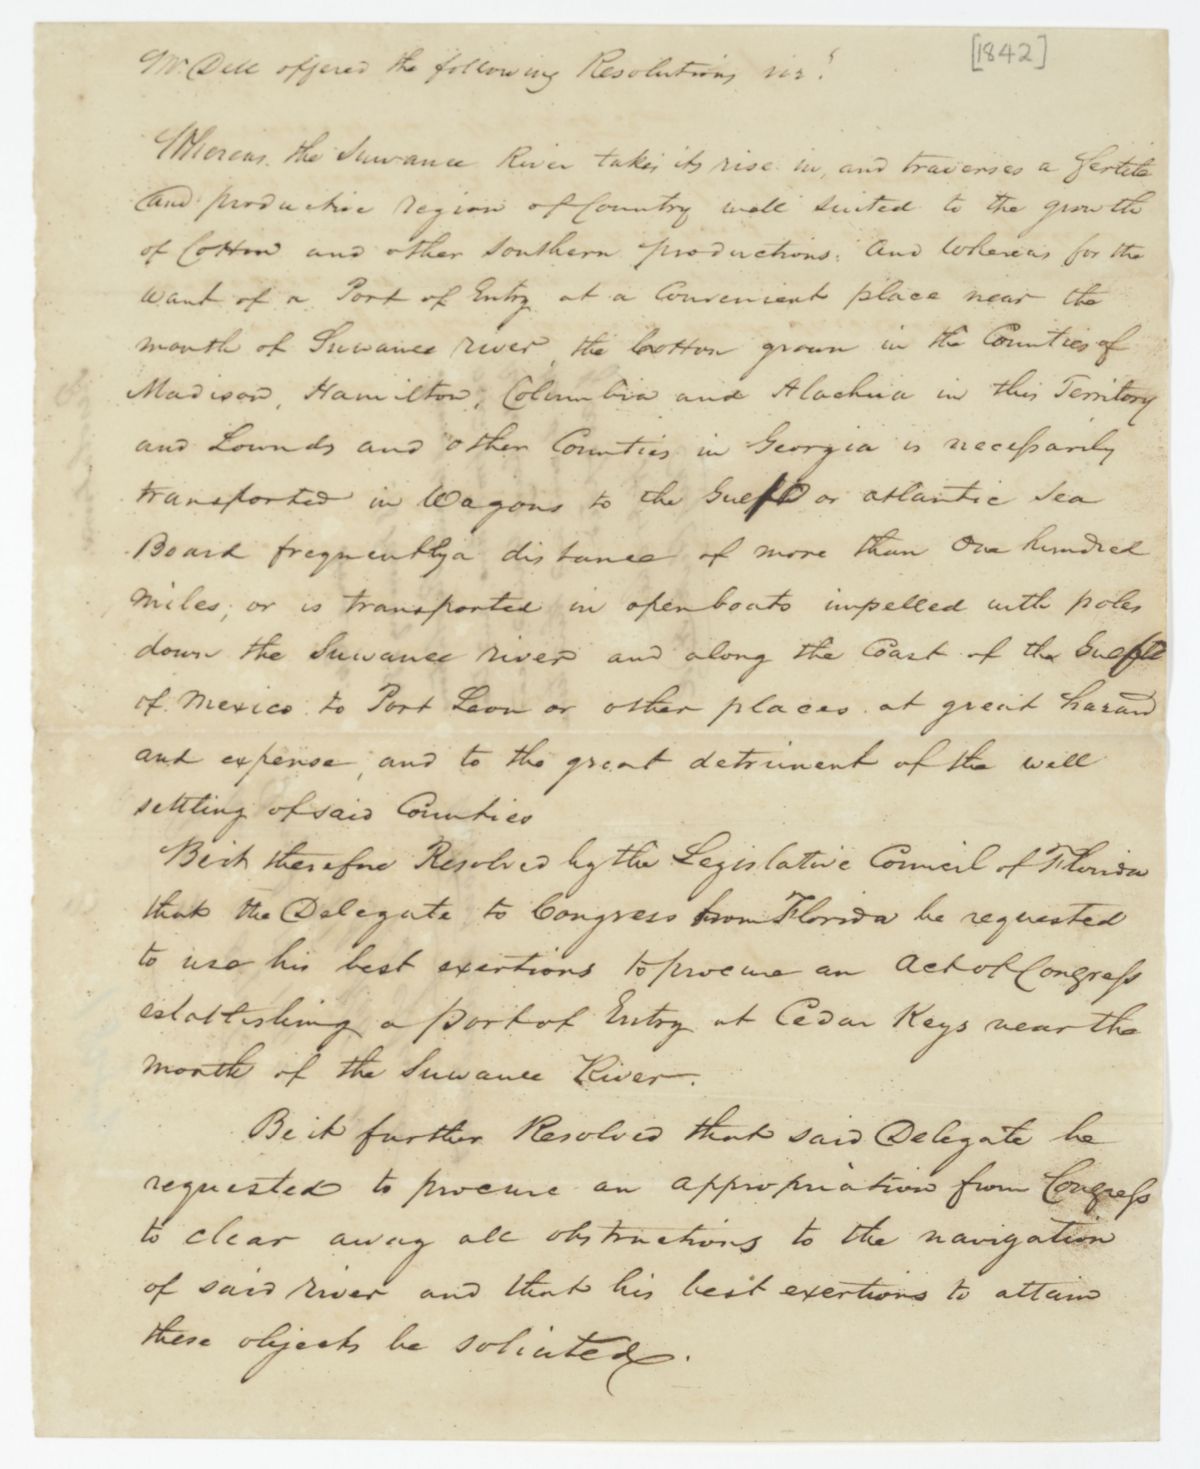 [1842]
Mr. Dell offered the following Resolutions viz:
Whereas the Suwanee River takes its rise in, and traverses a fertile
and productive region of Country well suited to the growth
of Cotton and other Southern productions: And Whereas for the
want of a Port of Entry at a Convenient place near the
mouth of Suwanee river, the Cotton grown in the Counties of
Madison, Hamilton, Columbia and Alachua in this Territory
and Lownds and other Counties in Georgia is necessarily
transported in Wagons to the Gulf or atlantic Sea
Board frequently a distance of more than One hundred
miles; or is transported in open boats impelled with poles
down the Suwanee river and along the Coast of the Gulf
of Mexico to Port Leon or other places at great hazard
and expense, and to the great detriment of the well
settling of said Counties
Be it therefore Resolved by the Legislative Council of Florida
that the Delegate to Congress from Florida be requested
to use his best exertions to procure an Act of Congress
establishing a port of Entry at Cedar Keys near the
mouth of the Suwanee River.
Be it further Resolved that said Delegate be
requested to procure an appropriation from Congress
to clear away all obstructions to the navigation
of said river and that his best exertions to attain
these objects be solicited.